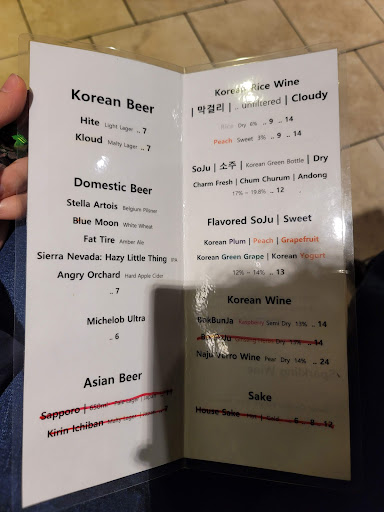 Korean Beer
Hite Light Lager .. 7
Kloud Malty Lager .. 7
Domestic Beer
Stella Artois Belgium Pilsner
Blue Moon White Wheat
Fat Tire Amber Ale
Sierra Nevada: Hazy Little Thing IPA
Angry Orchard Hard Apple Cider
.. 7
Michelob Ultra
.. 6
Asian Beer
Sapporo | 650ml
Kirin Ichiban Malty Lager
Korean Rice Wine
| 막걸리 | .. unfiltered | Cloudy
Rice Dry 6% .. 9 .. 14
Peach Sweet 3% .. 9 .. 14
SoJu | 소주 | Korean Green Bottle | Dry
Charm Fresh | Chum Churum | Andong
17% ~ 19.8% .. 12
Flavored SoJu | Sweet
Korean Plum | Peach | Grapefruit
Korean Green Grape | Korean Yogurt
12% ~ 14% .. 13
Korean Wine
BokBunJa Raspberry Semi Dry 13% .. 14
13% .. 14
Naju Verro Wine Pear Dry 14% .. 24
Sake
House Sake Hot | Cold .. 8 .. 12